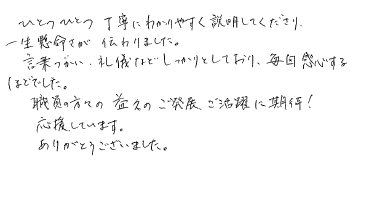 ひとつひとつ 丁寧にわかりやすく説明してくださり、
一生懸命さが 伝わりました。
言葉づかい、礼儀などしっかりとしており、毎回感心する
ほどでした。
職員の方々の 益々のご発展、ご活躍に期待！
応援しています。
ありがとうございました。